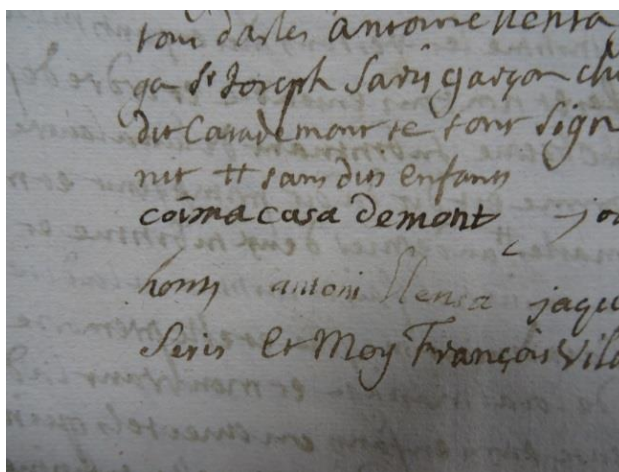 tous d'arles antoine llensa
ga Sr Joseph Saris garçon chi
dit Casademont se sont sign
nit # sans dits enfans
coima casa demont jo
hom antoni llensa jaqu
Seris et Moy François Vila